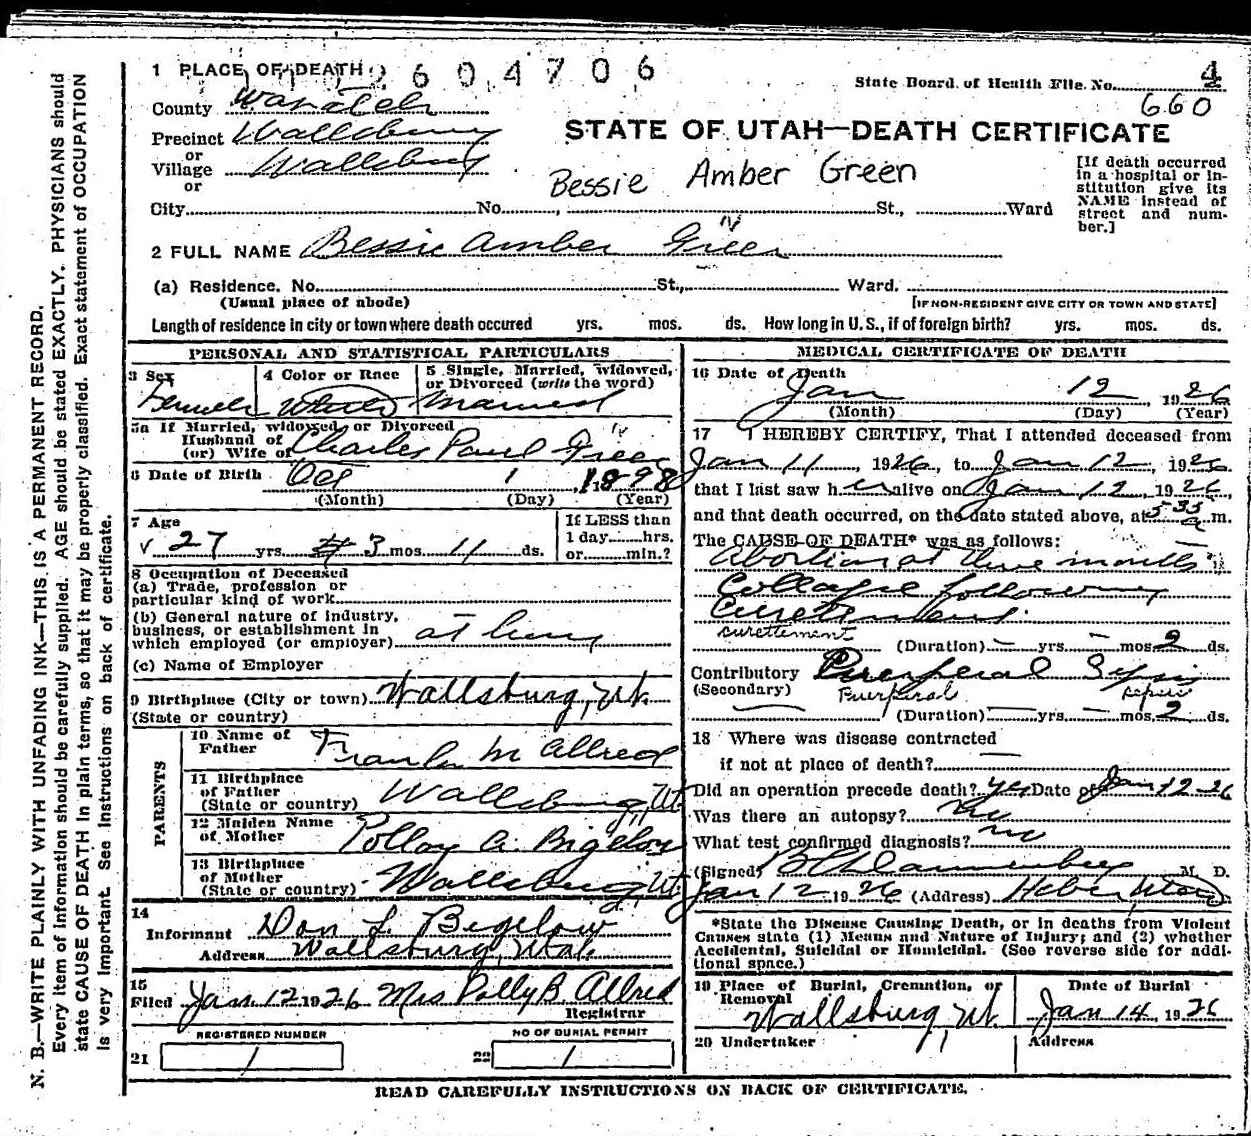 1 PLACE OF DEATH 2604706
State Board of Health File No. 4
County Wasatch
660
Precinct Wallsburg
STATE OF UTAH—DEATH CERTIFICATE
or
Village Wallsburg
or
[If death occurred
in a hospital or in-
stitution give its
NAME instead of
street and num-
ber.]
Bessie Amber Green
City No. St., Ward
2 FULL NAME Bessie Amber Green
(a) Residence. No. St., Ward.
(Usual place of abode) [IF NON-RESIDENT GIVE CITY OR TOWN AND STATE]
Length of residence in city or town where death occured yrs. mos. ds. How long in U. S., if of foreign birth? yrs. mos. ds.
PERSONAL AND STATISTICAL PARTICULARS
3 Sex
Female
4 Color or Race
White
5 Single, Married, widowed,
or Divorced (write the word)
Married
5a If Married, widowed or Divorced
Husband of
(or) Wife of Charles Paul Green
6 Date of Birth Oct 1 1898
(Month) (Day) (Year)
7 Age
27 yrs. 3 mos. 11 ds.
If LESS than
1 day hrs.
or min.?
8 Occupation of Deceased
(a) Trade, profession or
particular kind of work
(b) General nature of industry,
business, or establishment in
which employed (or employer) at home
(c) Name of Employer
9 Birthplace (City or town) Wallsburg, Ut.
(State or country)
PARENTS
10 Name of
Father M Allred
11 Birthplace
of Father
(State or country) Wallsburg, Ut
12 Maiden Name
of Mother A. Bigelow
13 Birthplace
of Mother
(State or country) Wallsburg, Ut
14
Informant Don L. Bigelow
Address Wallsburg, Utah
15
Filed Jan. 12 1926 Mrs Polly B. Allred
Registrar
REGISTERED NUMBER
21 1
NO OF BURIAL PERMIT
22 1
MEDICAL CERTIFICATE OF DEATH
16 Date of Death
Jan 12 1926
(Month) (Day) (Year)
17 I HEREBY CERTIFY, That I attended deceased from
Jan 11, 1926, to Jan 12, 1926
that I last saw her alive on Jan 12, 1926,
and that death occurred, on the date stated above, at 535 a m.
The CAUSE OF DEATH* was as follows:
Abortion at three months
Collapse following
Curettement
curettement
(Duration) — yrs. — mos. 2 ds.
Contributory Puerperal Sepsis
(Secondary) Puerperal sepsis
(Duration) — yrs. — mos. 2 ds.
18 Where was disease contracted
if not at place of death? —
Did an operation precede death? yes Date of Jan 12-26
Was there an autopsy? no
What test confirmed diagnosis? no
(Signed) M. D.
Jan 12 1926 (Address) Heber Utah
*State the Disease Causing Death, or in deaths from Violent
Causes state (1) Means and Nature of Injury; and (2) whether
Accidental, Suicidal or Homicidal. (See reverse side for addi-
tional space.)
19 Place of Burial, Cremation, or
Removal
Wallsburg, Ut.
Date of Burial
Jan 14, 1926
20 Undertaker
Address
READ CAREFULLY INSTRUCTIONS ON BACK OF CERTIFICATE.
N. B.—WRITE PLAINLY WITH UNFADING INK—THIS IS A PERMANENT RECORD.
Every item of information should be carefully supplied. AGE should be stated EXACTLY. PHYSICIANS should
state CAUSE OF DEATH in plain terms, so that it may be properly classified. Exact statement of OCCUPATION
is very important. See instructions on back of certificate.